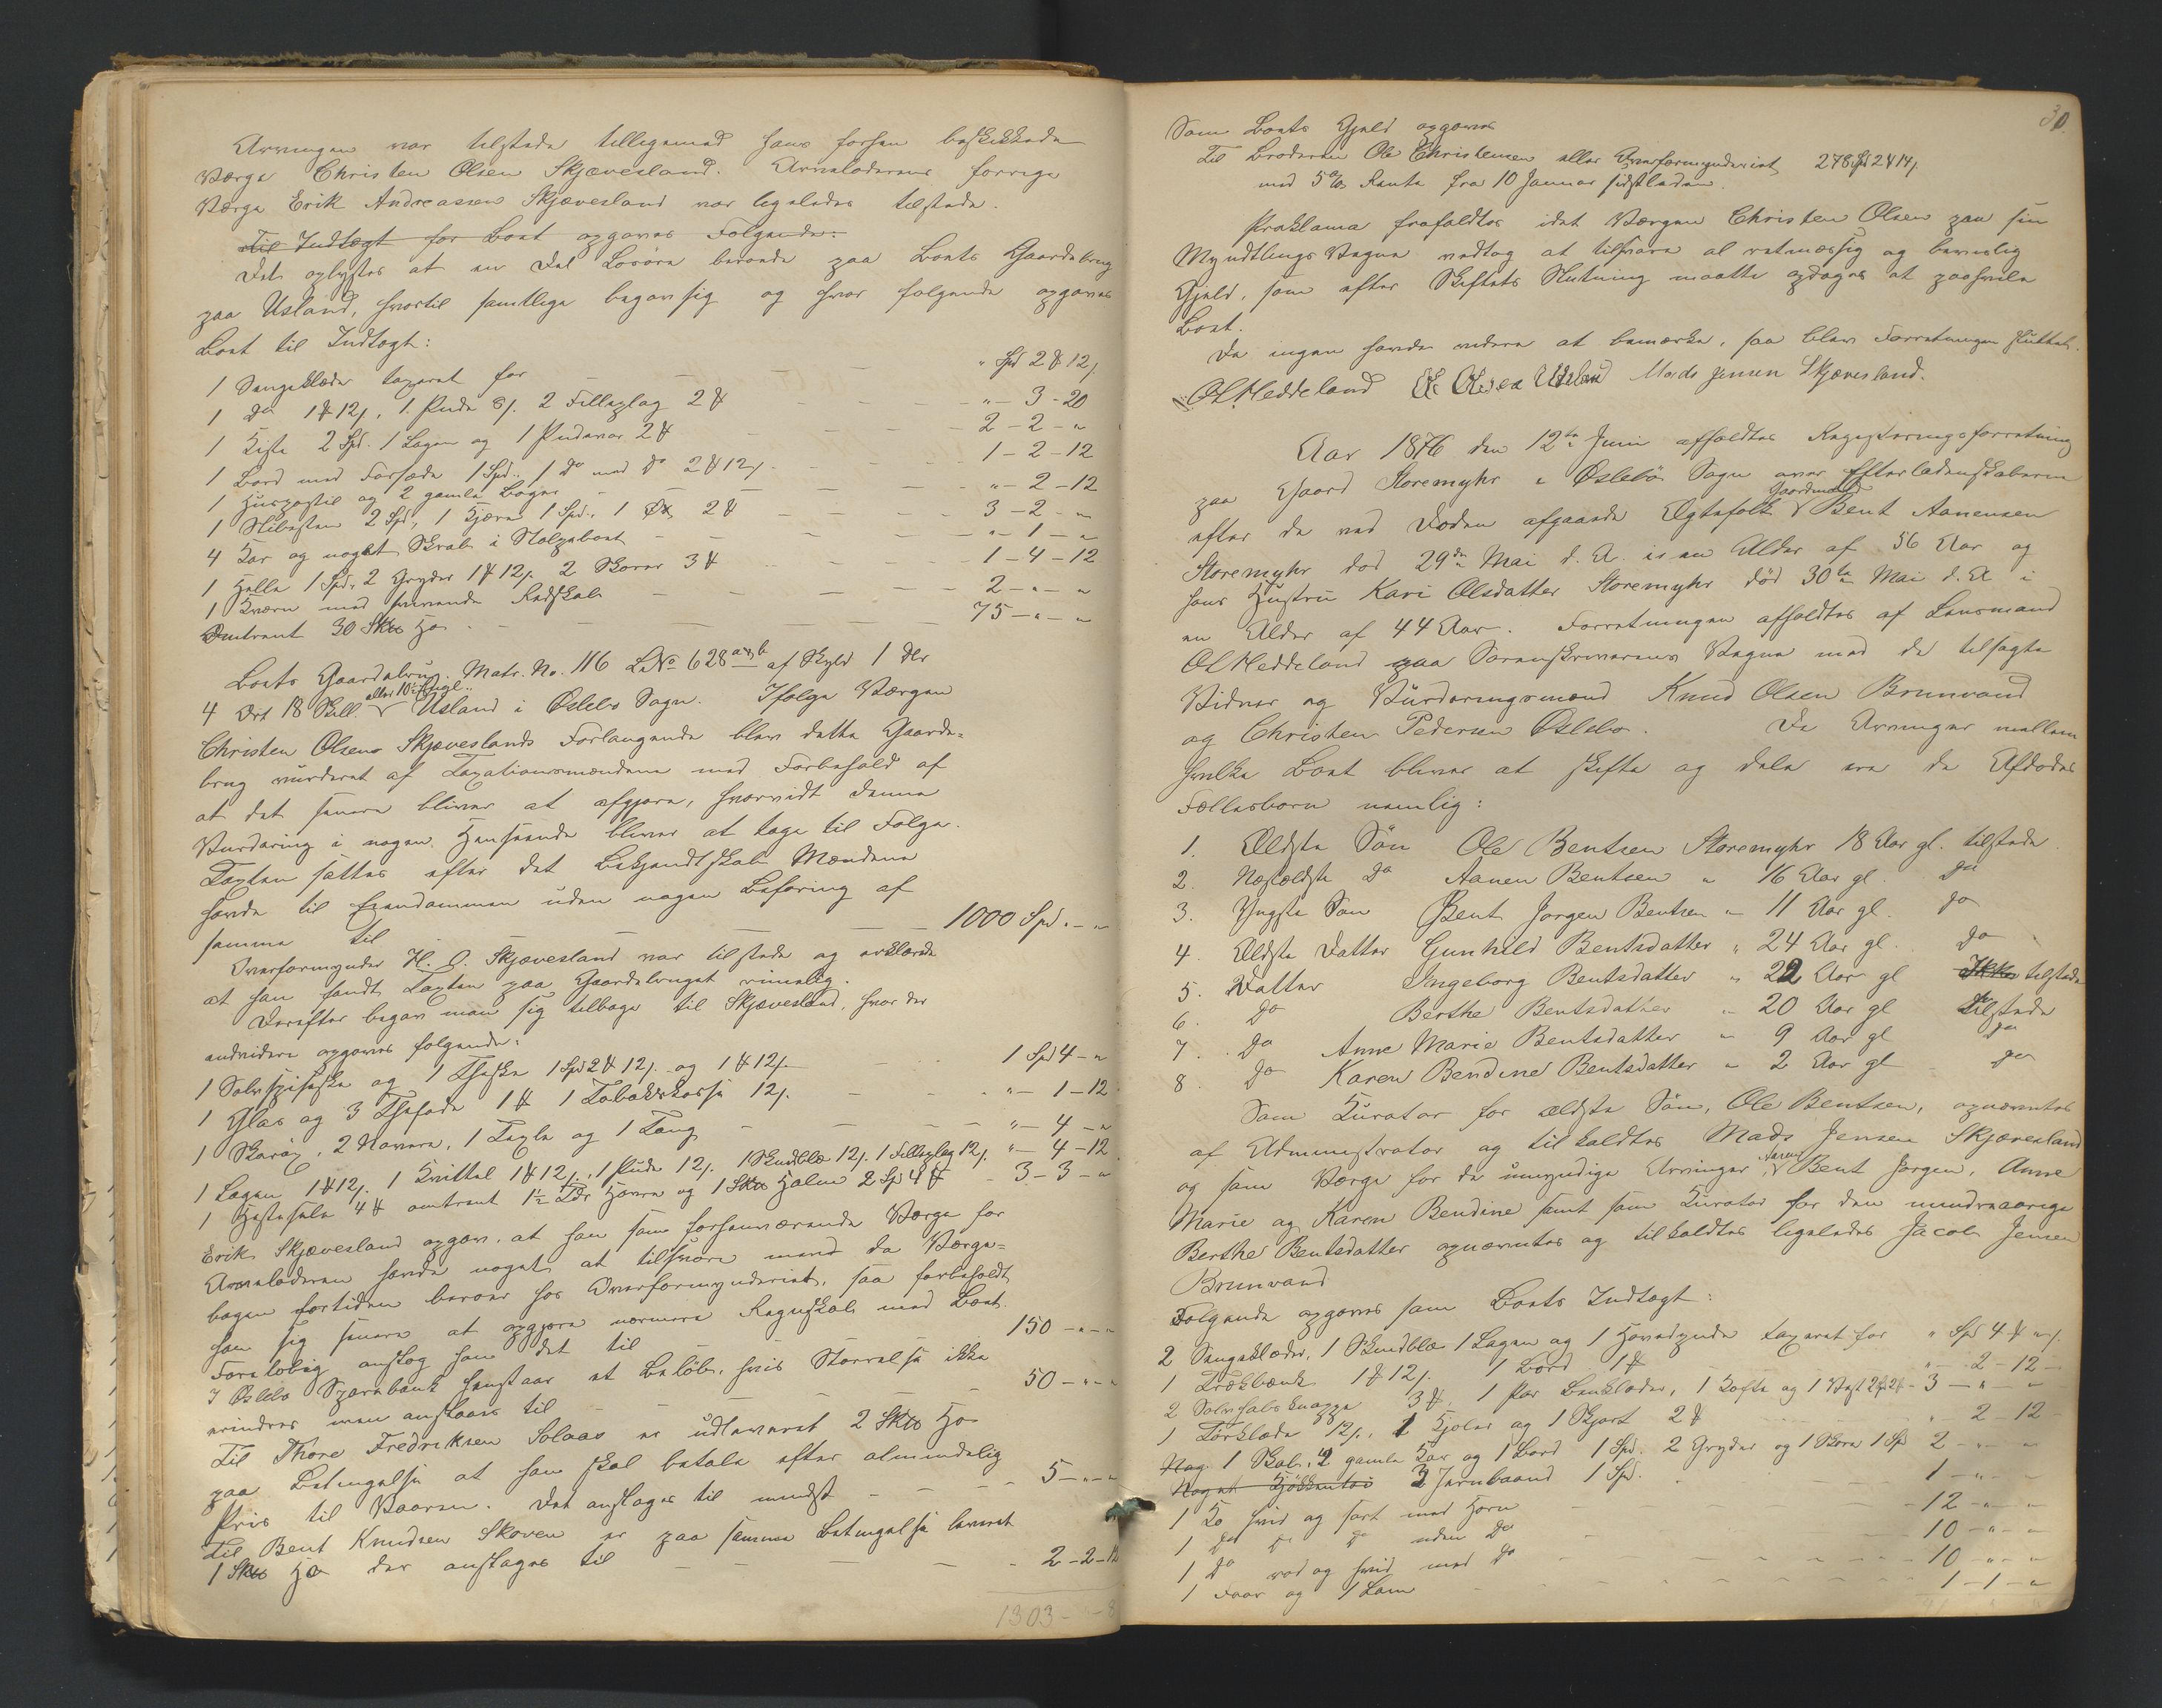 Arvingen var tilstede tilligemed hans forhen beskikkede
Værge Christen Olsen Skjævesland. Arveladerens forrige
Værge Erik Andreassen Skjævesland var ligeledes tilstede.
Til Indtægt for Boet opgaves Følgende:
Det oplystes at en Del Løsøre beroede paa Boets Gaardebrug
paa Usland, hvortil samtlige begav sig og hvor følgende opgaves
Boet til Indtægt:
1 Sengeklæder taxeret for — " Spd 2 ₰ 12 s.
1 do 1 ₰ 12 s., 1 Pude 8 s. 2 Filleplag 2 ₰ — "-3-20
1 Kiste 2 Spd. 1 Lagen og 1 Pudevar 2 ₰ — 2-2-"
1 Bord med Forsæde 1 Spd., 1 do med do 2 ₰ 12 s. — 1-2-12
1 Huspostil og 2 gamle Bøger — "-2-12
1 Slibesten 2 Spd, 1 Kjærre 1 Spd., 1 Øx 2 ₰ — 3-2-"
4 Kar og noget Skrab i Stolpeboet — "-1-"
1 Helle 1 Spd, 2 Gryder 1 ₰ 12 s. 2 Skorer 3 ₰ — 1-4-12
1 Kværn med henværende Redskab — 2-"-"
Omtrent 30 Sk℔ Hø — 75-"-"
Boets Gaardebrug Matr. No. 116 LNo 628 a og b af Skyld 1 Dlr
4 Ort 18 Skill. eller 10½ Engl.. Usland i Øslebø Sogn. Ifølge Værgen
Christen Olsens Skjæveslands Forlangende blev dette Gaarde-
brug vurderet af Taxationsmændene med Forbehold af
at det senere bliver at afgjøre, hvorvidt denne
Vurdering i nogen Henseende bliver at tage til Følge.
Taxten sattes efter det Bekjendtskab Mændene
havde til Eiendommen uden nogen Befaring af
samme til — 1000 Spd.-"
Overformynder H. O. Skjævesland var tilstede og erklærede
at han fandt Taxten paa Gaardebruget rimelig.
Derefter begav man sig tilbage til Skjævesland, hvor der
endvidere opgaves følgende:
1 Sølvspiseske og 1 Theske 1 Spd 2 ₰ 12 s. og 1 ₰ 12 s. — 1 Spd 4-"
1 Glas og 3 Thefade 1 ₰ 1 Tobaksdaase 12 s. — "-1-12
1 Skarøx, 2 Navere, 1 Texle og 1 Tang — "-4-"
1 Lagen 1 ₰ 12 s. 1 Kvittel 1 ₰ 12 s., 1 Pude 12 s. 1 Skindblæ 12 s. 1 Filleplag 12 s. "-4-12
1 Hestesele 4 ₰ omtrent 1½ Tdr Havre og 1 Sk℔ Halm 2 Sp 4 ₰ - 3-3-"
Erik Skjævesland opgav, at han som forhenværende Værge for
Arveladeren havde noget at tilsvare mend da Værge-
bogen fortiden beroer hos Overformynderiet, saa forbeholdt
han sig senere at opgjøre nærmere Regnskab med Boet.
Foreløbig anslog han det til — 150-"-"
I Øslebø Sparebank henstaar et Beløb, hvis Størrelse ikke
erindres men ansloges til — 50-"-"
Til Thore Fredriksen Solaas er udleveret 2 Sk℔ Hø
paa Betingelse at han skal betale efter almindelig
Pris til Vaaren. Det ansloges til mindst — 5-"-"
Til Bent Knudsen Skoven er paa samme Betingelse leveret
1 Sk℔ Hø der ansloges til — 2-2-12
1303- -8
30.
Som Boets Gjeld opgaves
Til Broderen Ole Christensen eller Overformynderiet 278 Spd 2 ₰ 14 s.
med 5 % Rente fra 10 Januar sidstleden.
Proklama frafaldtes idet Værgen Christen Olsen paa sin
Myndtlings Vegne vedtog at tilsvare al retmæssig og beviislig
Gjeld, som efter Skiftets Slutning maatte opdages at paahvile
Boet.
Da ingen havde videre at bemærke, saa blev Forretningen sluttet.
OL Heddeland Mads Jensen Skjævesland.
Aar 1876 den 12te Juni afholdtes Registreringsforretning
paa Gaard Storemyhr i Øslebø Sogn over Efterladenskaberne
efter de ved Døden afgaaede Ægtefolk Gaardmand Bent Aanensen
Storemyhr død 29de Mai d. A. i en Alder af 56 Aar og
hans Hustru Kari Olsdatter Storemyhr død 30te Mai d. A i
en Alder af 44 Aar. Forretningen afholdtes af Lensmand
OL Heddeland paa Sorenskriverens Vegne med de tilsagte
Vidner og Vurderingsmænd Knud Olsen Brunvand
og Christen Pedersen Øslebø. De Arvinger mellem
hvilke Boet bliver at skifte og dele ere de Afdødes
Fællesbørn nemlig:
1. Ældste Søn Ole Bentsen Storemyhr 18 Aar gl. tilstede
2. Næstældste do Aanen Bentsen " 16 Aar gl. do
3. Yngste Søn Bent Jørgen Bentsen " 11 Aar gl. do
4. Ældste Datter Gunhild Bentsdatter " 24 Aar gl. do
5. Datter Ingeborg Bentsdatter " 22 Aar gl Ikke tilstede
6. do Berthe Bentsdatter " 20 Aar gl Tilstede
7. do Anne Marie Bentsdatter " 9 Aar gl do
8. do Karen Bendine Bentsdatter " 2 Aar gl do
Som Kurator for ældste Søn, Ole Bentsen, opnævntes
af Administrator og tilkaldtes Mads Jensen Skjævesland
og som Værge for de umyndige Arvinger Aanen, Bent Jørgen, Anne
Marie og Karen Bendine samt som Kurator for den mindreaarige
Berthe Bentsdatter opnævntes og tilkaldtes ligeledes Jacob Jensen
Brunvand
Følgende opgaves som Boets Indtægt:
2 Sengeklæder, 1 Skindblæ 1 Lagen og 1 Hovedpude taxeret for " Spd 4 ₰ " s.
1 Trækbænk 1 ₰ 12 s. 1 Bord 1 ₰ "-2-12-
2 Sølvhalsknapper 3 ₰. 1 Par Benklæder, 1 Kofte og 1 Vest 2 ₰ - 3-"-"
1 Tørklæde 12 s., 1 Kjoler og 1 Skjørt 2 ₰ " 2-12-
Nog 1 Bal., 2 gamle Kar og 1 Bord 1 Spd. 2 Gryder og 1 Skore 1 Sp 2-"-"
Noget Kjøkkentøi 2 Jernbaand 1 Spd. 1-"-"
1 Ko hvid og sort med Horn - 12-"-"
1 do do do uden do 10-"-"
1 do rød og hvid med do 10-"-"
1 Faar og 1 Lam 1-1-"